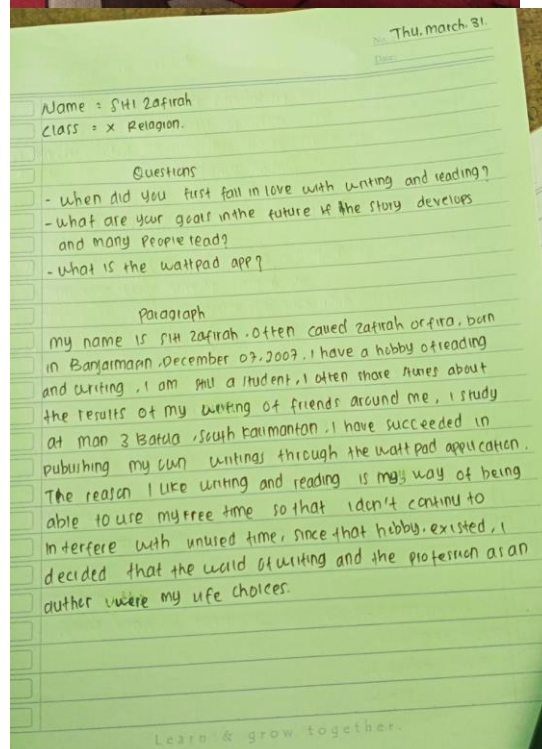 No. Thu, march. 31.
Date:
Name : SHI Zafirah
Class : X Relagion.
Questions
- when did you first fall in love with writing and reading?
- what are your goals in the future if the story develops
and many people read?
- what is the wattpad app?
Paragraph
my name is SIH Zafirah. Often called zafirah or fira, born
in Banjarmasin, December 07, 2007. I have a hobby of reading
and writing, I am still a student, I often share stories about
the results of my writing of friends around me, I study
at man 3 Batola, South Kalimantan. I have succeeded in
publishing my own writings through the watt pad application.
The reason I like writing and reading is my way of being
able to use my free time so that I don't continu to
interfere with unused time, since that hobby. existed, I
decided that the world of writing and the profession as an
auther were my life choices.
Learn & grow together.